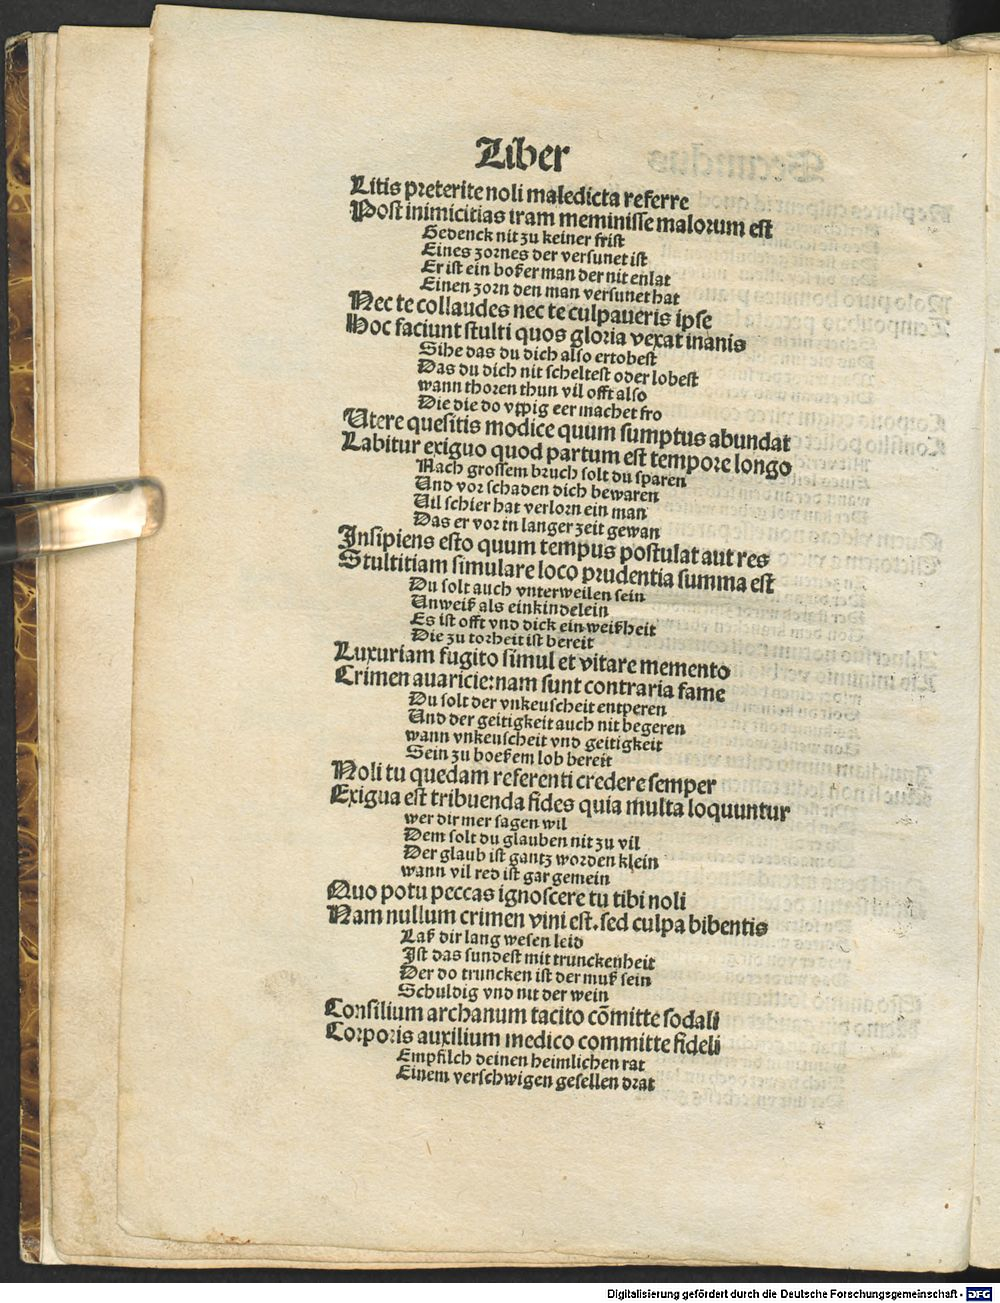 Liber
Litis preterite noli maledicta referre
Post inimicitias iram meminisse malorum est
Gedenck nit zu keiner frist
Eines zornes der versunet ist
Er ist ein boßer man der nit enlat
Einen zorn den man versunet hat
Nec te collaudes nec te culpaueris ipse
Hoc faciunt stulti quos gloria vexat inanis
Sihe das du dich also ertobest
Das du dich nit scheltest oder lobest
wann thoren thun vil offt also
Die die do vppig eer machet fro
Utere quesitis modice quum sumptus abundat
Labitur exiguo quod partum est tempore longo
Nach grossem bruch solt du sparen
Und vor schaden dich bewaren
Uil schier hat verlorn ein man
Das er vor in langer zeit gewan
Insipiens esto quum tempus postulat aut res
Stultitiam simulare loco prudentia summa est
Du solt auch vnterweilen sein
Unweiß als einkindelein
Es ist offt vnd dick ein weißheit
Die zu torheit ist bereit
Luxuriam fugito simul et vitare memento
Crimen auaricie: nam sunt contraria fame
Du solt der vnkeuscheit entperen
Und der geitigkeit auch nit begeren
wann vnkeuscheit vnd geitigkeit
Sein zu boeßem lob bereit
Noli tu quedam referenti credere semper
Exigua est tribuenda fides quia multa loquuntur
wer dir mer sagen wil
Dem solt du glauben nit zu vil
Der glaub ist gantz worden klein
wann vil red ist gar gemein
Quo potu peccas ignoscere tu tibi noli
Nam nullum crimen vini est. sed culpa bibentis
Laß dir lang wesen leid
Ist das sundest mit trunckenheit
Der do truncken ist der muß sein
Schuldig vnd nit der wein
Consilium archanum tacito cōmitte sodali
Corporis auxilium medico committe fideli
Empfilch deinen heimlichen rat
Einem verschwigen gesellen drat
Digitalisierung gefördert durch die Deutsche Forschungsgemeinschaft - DFG